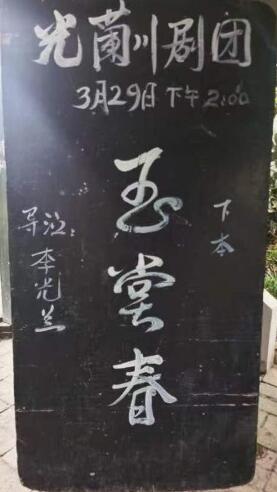 光蘭川剧团
3月29日下午2:00
玉棠春
下本
导泣:李光兰